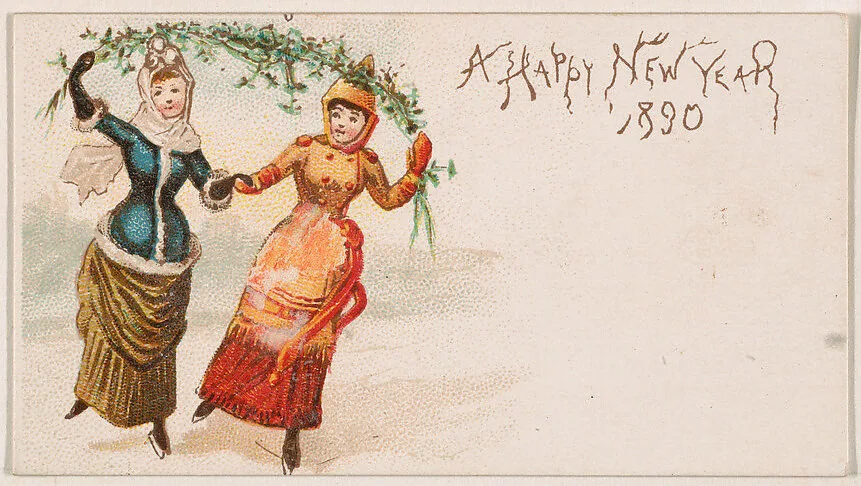 A HAPPY NEW YEAR
1890